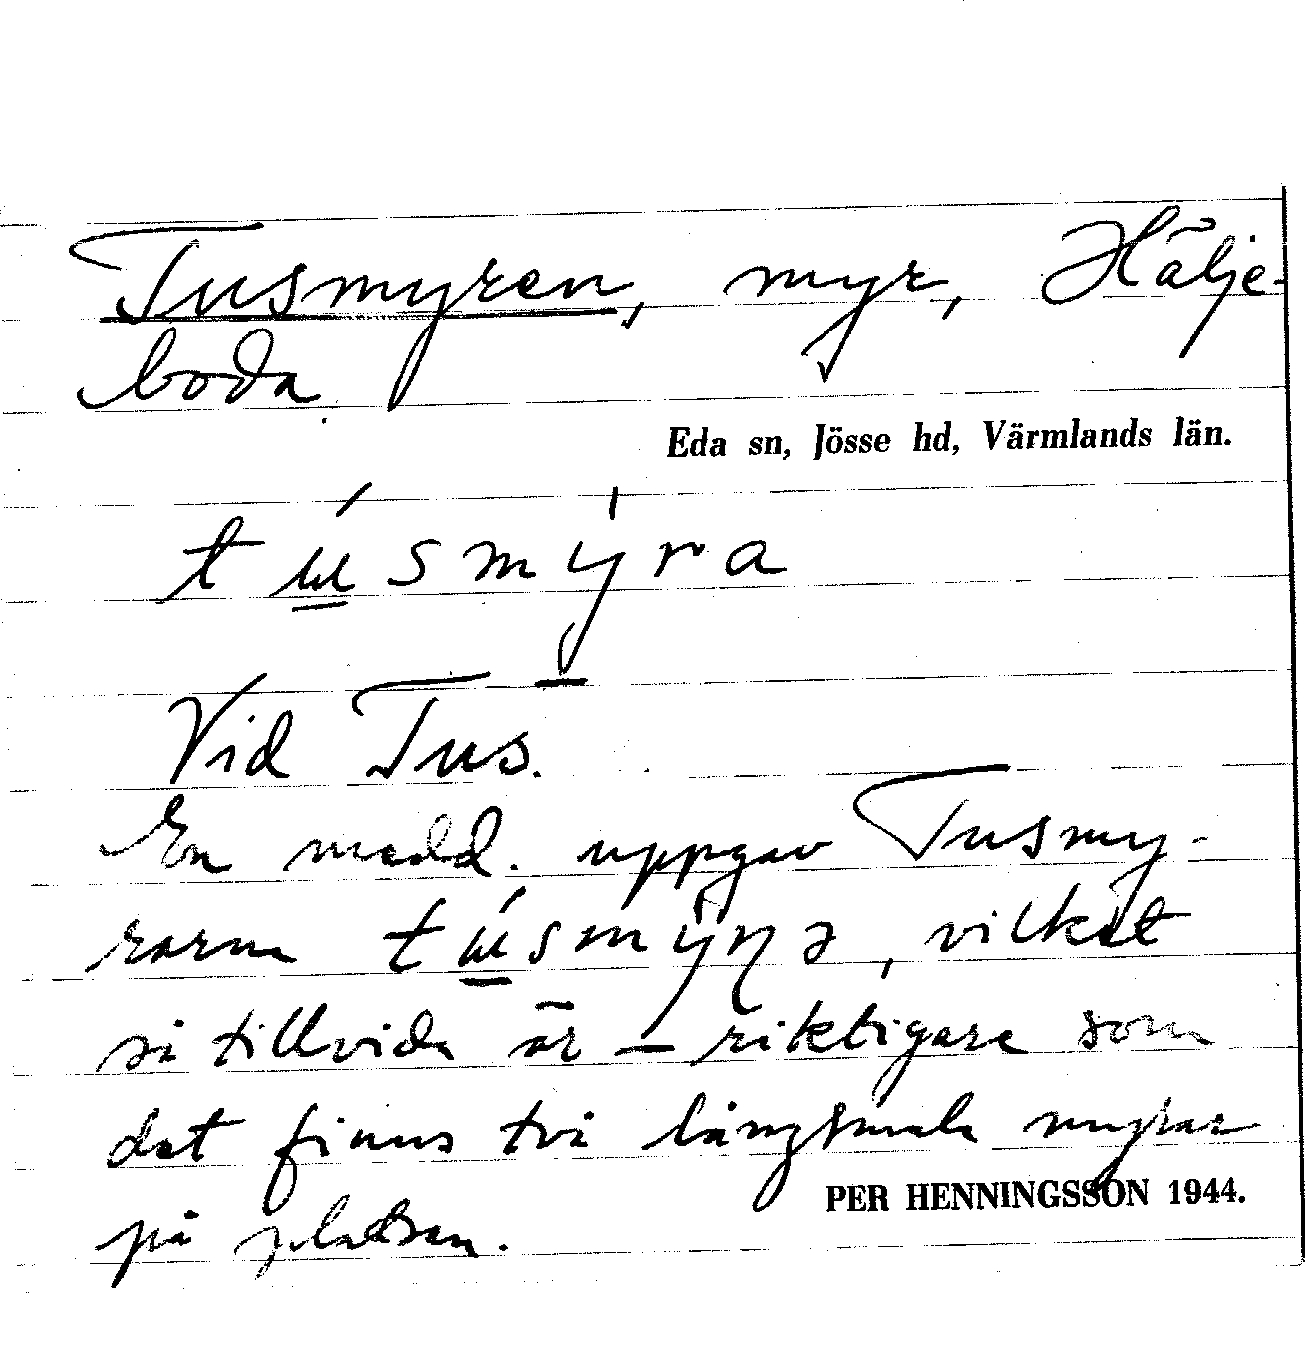 Tusmyren, myr, Hälje-
boda.
Eda sn, Jösse hd, Värmlands län.
Vid Tus.
En medd. uppgav Tusmy-
rarna, vilket
så tillvida är riktigare som
det finns två långsmala myrar
på platsen.
PER HENNINGSSON 1944.